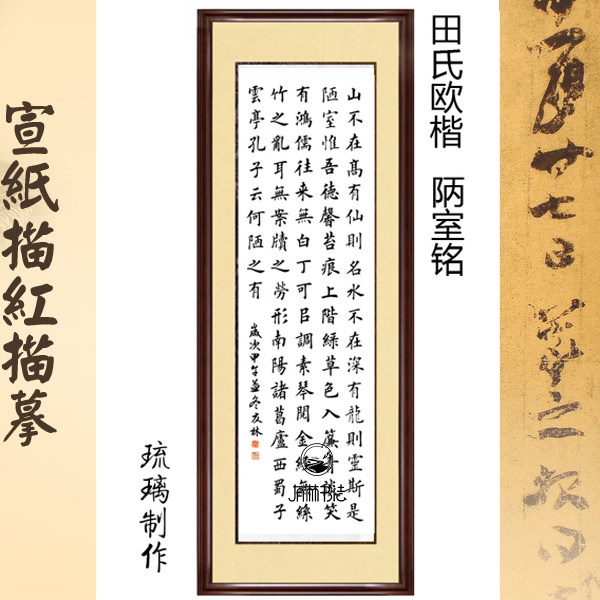 田氏欧楷 陃室铭
山不在髙有仙則名水不在深有龍則霊斯是
陋室惟吾德馨苔痕上階緑草色入簾青談笑
有鴻儒往来無白丁可㠯調素琴閲金經無絲
竹之亂耳無案牘之勞形南陽諸葛廬西蜀子
雲亭孔子云何陋之有
歲次甲午孟冬友林
宣紙描紅描摹
琉璃制作
林书法
廿七日